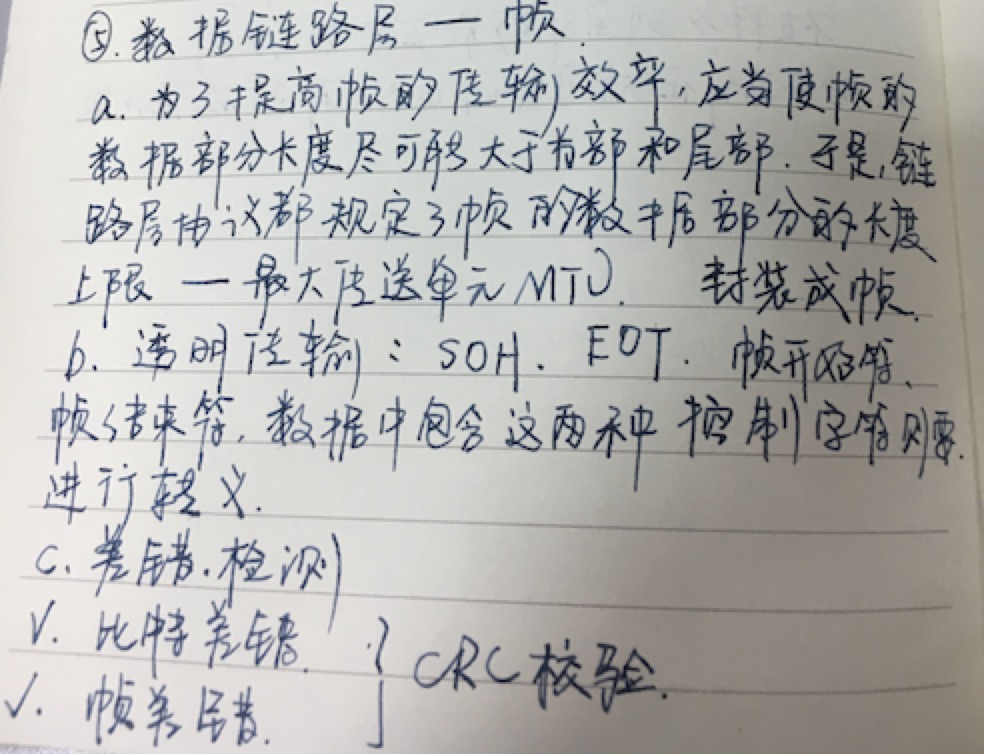 ⑤. 数据链路层 — 帧.
a. 为了提高帧的传输效率,应当使帧的
数据部分长度尽可能大于首部和尾部.于是,链
路层协议都规定了帧的数据部分的长度
上限 — 最大传送单元MTU. 封装成帧.
b. 透明传输: SOH. EOT. 帧开始符.
帧结束符.数据中包含这两种控制字符则要
进行转义.
c. 差错.检测
√. 比特差错.
} CRC校验.
√. 帧差错.